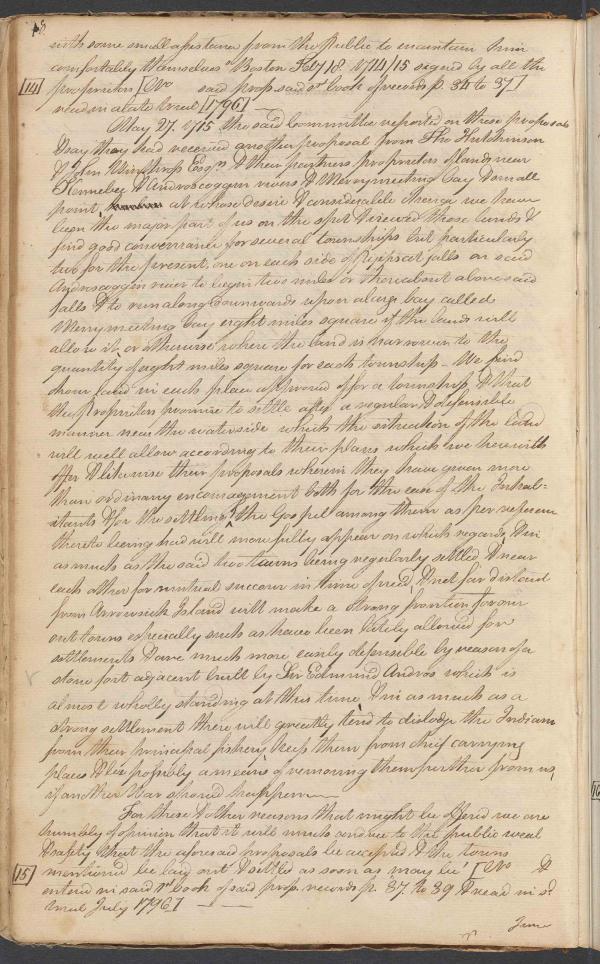 18
with some small assistance from the Public to maintain him
comfortably themselves" Boston Feby 18. 1714/15 signed by all the
[14] proprietors [ said prop. said 1st book of records p. 34 to 37]
read in at a trial [1796] —
May 27. 1715 the said Committee reported on these proposals
& say they had received another proposal from Tho Hutchinson
& John Winthrop Esqrs & their partners proprietors of lands near
Kennebec & Androscoggin rivers & Merrymeeting Bay & small
point, at whose desire & considerable charge we have
been the major part of us on the spot & viewed those lands &
find good conveniance for several townships but particularly
two for the present, one on each side of Pejepscot falls on said
Androscoggin river to begin two miles or thereabout above said
falls & to run along downwards upon a large bay called
Merrymeeting bay eight miles square if the lands will
allow it or otherwise where the land is narrower to the
quantity of eight miles square for each township — We find
land in each place approved of for a township, & that
the Proprietors promise to settle after a regular & defensible
manner near the waterside which the situation of the land
will well allow according to their plans which we herewith
offer & likewise their proposals wherein they have given more
than ordinary encouragement both for the ease of the Inhab=
itants & for the settling of the Gospel among them as per reference
thereto being had will more fully appear on which regards, & in
as much as the said two towns being regularly settled & near
each other for mutual succour in time of need, & not far distant
from Arrowsick Island will make a strong frontier to our
out towns especially such as have been lately allowed for
settlements & are much more easily defensible by reason of a
stone fort adjacent built by Sir Edmund Andros which is
almost wholly standing at this time & in as much as a
strong settlement there will greatly tend to dislodge the Indians
from their principal fishery, keep them from chief carrying
places & be possibly a means of removing them further from us,
if another War should happen —
For these & other reasons that might be offered we are
humbly of opinion that it will much conduce to the public weal
& safety that the aforesaid proposals be accepted & the towns
mentioned be laid out & settled as soon as may be" [ &
[15] entered in said 1st book of said prop. records p. 37. to 39 & read in sd
trial July 1796] —
June